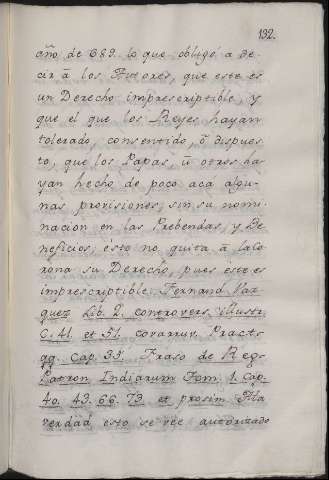 132.
año de 689. lo que obligó a de-
cir á los Autores, que este es
un Derecho imprescriptible, y
que el que los Reyes hayan
tolerado, consentido, ó dispues
to, que los Papas, ú otros ha-
yan hecho de poco acá algu-
nas provisiones, sin su nomi-
nacion en las Prebendas, y Be-
neficios, ésto no quita á la Co
rona su Derecho, pues éste es
imprescriptible. Fernand. Vaz
quez Lib. 2. controvers. illustr.
C. 41. et 51. covarruv. Practs
qq. Cap. 35. Fraso de Reg.
Patron. Indiarum Tom. 1. Cap.
40. 43. 66. 73. et prosim. A la
verdad esto se vee autorizado